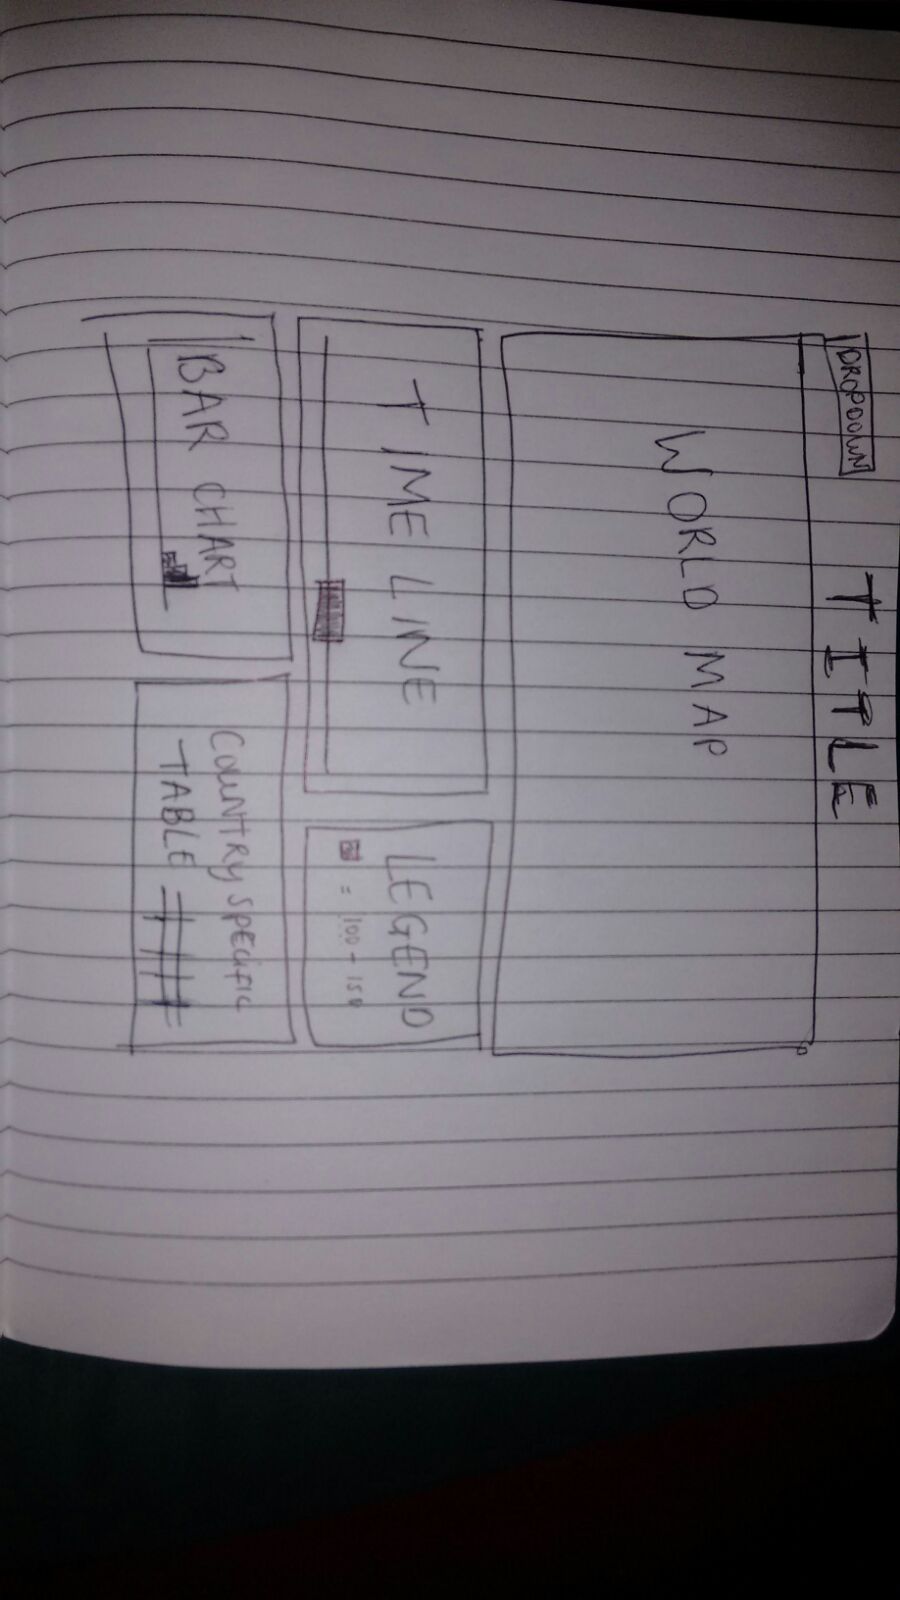 DROPDOWN
TITLE
WORLD MAP
TIME LINE
LEGEND
= 100 - 150
BAR CHART
COUNTRY SPECIFIC
TABLE